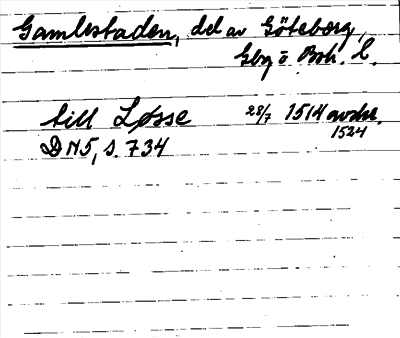 Gamlestaden, del av Göteborg,
Gbg o Boh. l.
till Løsse 28/7 1514 avskr.
1524
DN5, s. 734